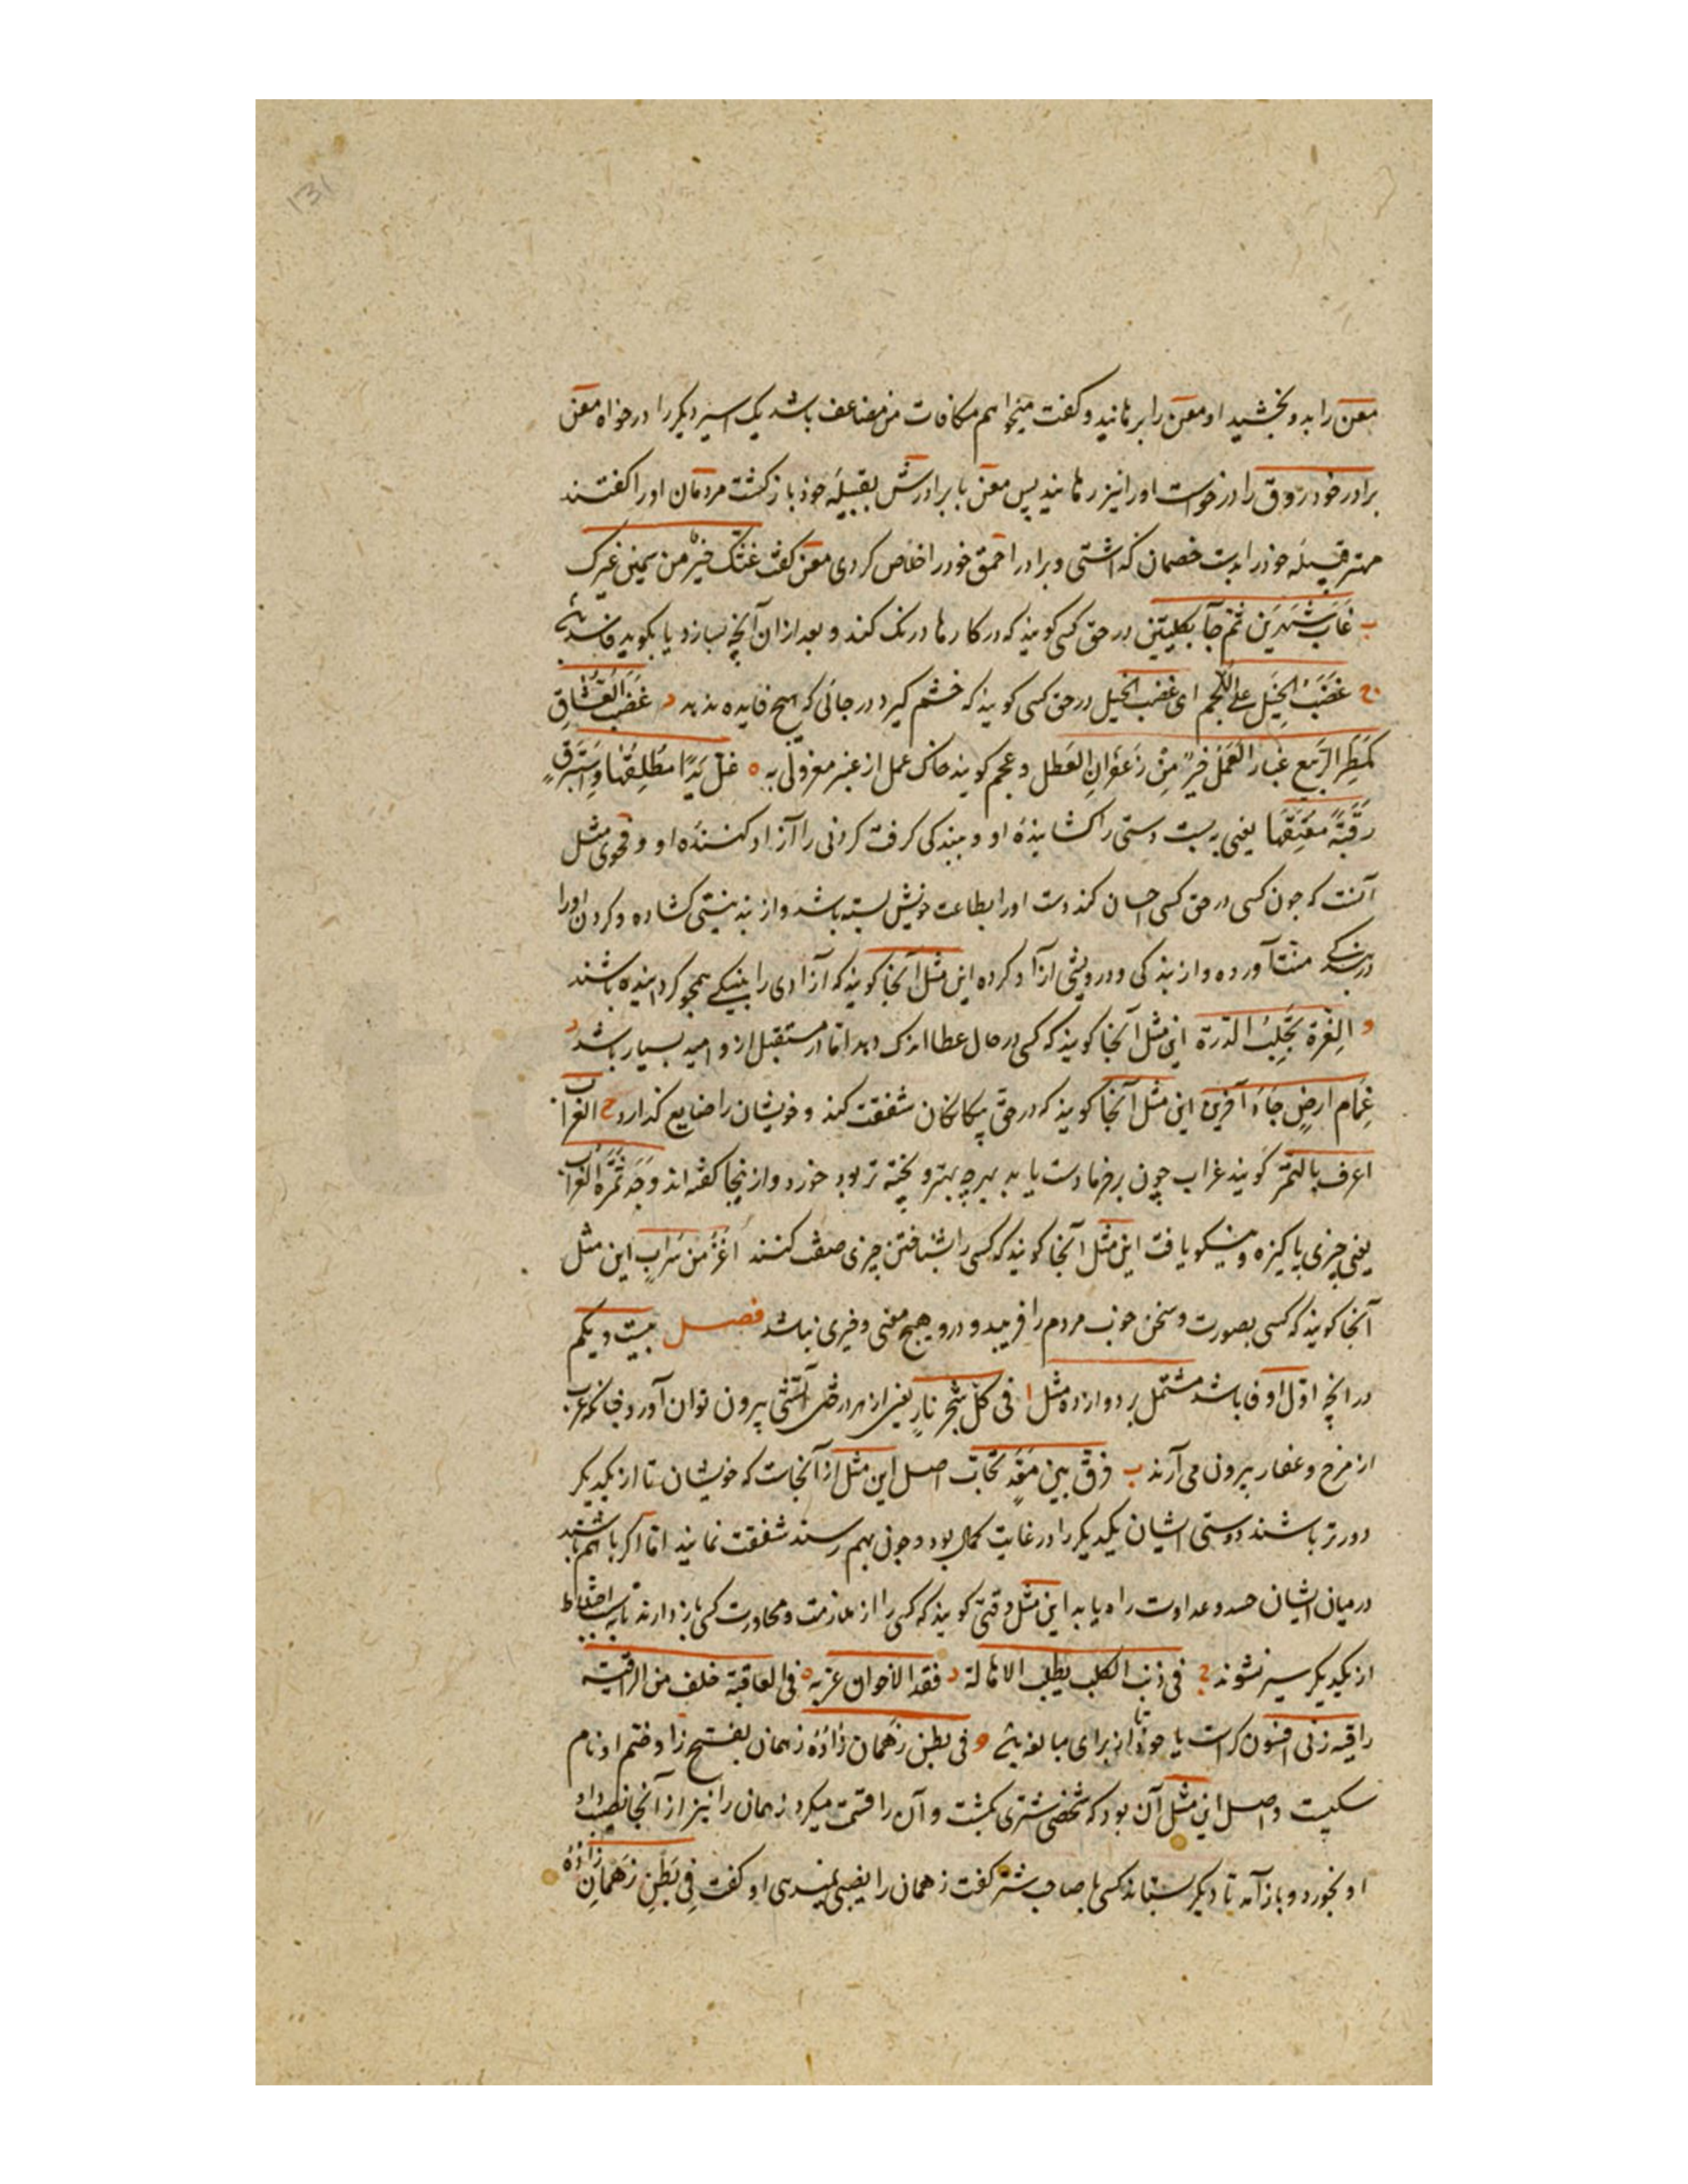 131
معن را بدو بخشید او معن را برهانید و گفت میخواهم مکافات من مضاعف باشد یک اسیر دیگر را درخواه معن
برادر خود روق را درخواست او را نیز رهانید پس معن با برادرش بقبیله خود باز گشت مردمان او را گفتند
مهتر قبیله خود را بدست خصمان گذاشتی و برادر احمق خود را خلاص کردی معن گفت غثک خیر من سمین غیرک
ب غاب شهرین ثم جآ بکلبتین در حق کسی گویند که در کارها درنک کند و بعد ازان آنچه بسازد یا بگوید فاسد
ج غضب الخیل علی اللجم ای غضب الخیل در حق کسی گویند که خشم گیرد در جائی که هیچ فایده ندهد د غضب العشاق
کمطر الربیع غبار العمل خیر من زعفران العطل و عجم گویند خاک عمل از عنبر معزولی به ه غل یدا مطلقها و استرق
رقبة معتقها یعنی به بست دستی را گشاینده او و ببندگی گرفت گردنی را آزاد کننده او و فحوی مثل
آنست که چون کسی در حق کسی احسان کند دست او را بطاعت خویش بسته باشد و از بند نیستی گشاده و گردن او را
در بندگی منت آورده و از بندگی و درویشی ازآد کرده این مثل آنجا گویند که آزادی را بنیکی همچو گردانیده باشند
و الغرة تجلب الدرة این مثل آنجا گویند که کسی در حال عطا اندک دهد اما در مستقبل ازو امید بسیار باشد
غمام ارض جاد آخرین این مثل آنجا گویند که در حق بیکانکان شفقت کند و خویشان را ضایع گذارد ح الغراب
اعرف بالتمر گویند غراب چون بر خرما دست یابد بهرچه بهتر و پخته تر بود خورد و ازینجا گفته اند وجد تمرة الغراب
یعنی چیزی پاکیزه و نیکو یافت این مثل آنجا گویند که کسی را بشناختن چیزی صفت کنند اغر من سراب این مثل
آنجا گویند که کسی بصورت و سخن خوب مردم را فریبد و درو هیچ معنی و خیری نباشد فصل بیست و یکم
در انچه اول او فا باشد مشتمل بر دوازده مثل ا فی کل شجر نار یعنی از هر درختی آتشی بیرون توان آورد چنانکه عرب
از مرخ و عفار بیرون می آرند ب فرق بین معد تحاب اصل این مثل از آنجاست که خویشان تا از یکدیگر
دورتر باشند دوستی ایشان یکدیگر را در غایت کمال بود و چون بهم رسند شفقت نمایند اما اگر با هم باشند
در میان ایشان حسد و عداوت راه یابد این مثل وقتی گویند که کسی را از ملازمت و مجاورت کسی باز دارند تا بسبب اختلاط
از یکدیگر سیر نشوند ج فی ذنب الکلب یطلب الاهالة د فقد الاخوان غربه ه فی العاقبة خلف من الراقیه
راقیه زنی افسون گر است یا خود تا از برای مبالغه است و فی بطن زهمان زاده زهمان بفتح زا و ضم او نام
سگیست و اصل این مثل آن بود که شخصی شتری بکشت و آن را قسمت میکرد زهمان را نیز از آنجا نصیب داد
او بخورد و باز آمد تا دیگر ستاند کسی با صاحب شتر گفت زهمان را نصیبی نمیدهی او گفت فی بطن زهمان زاده